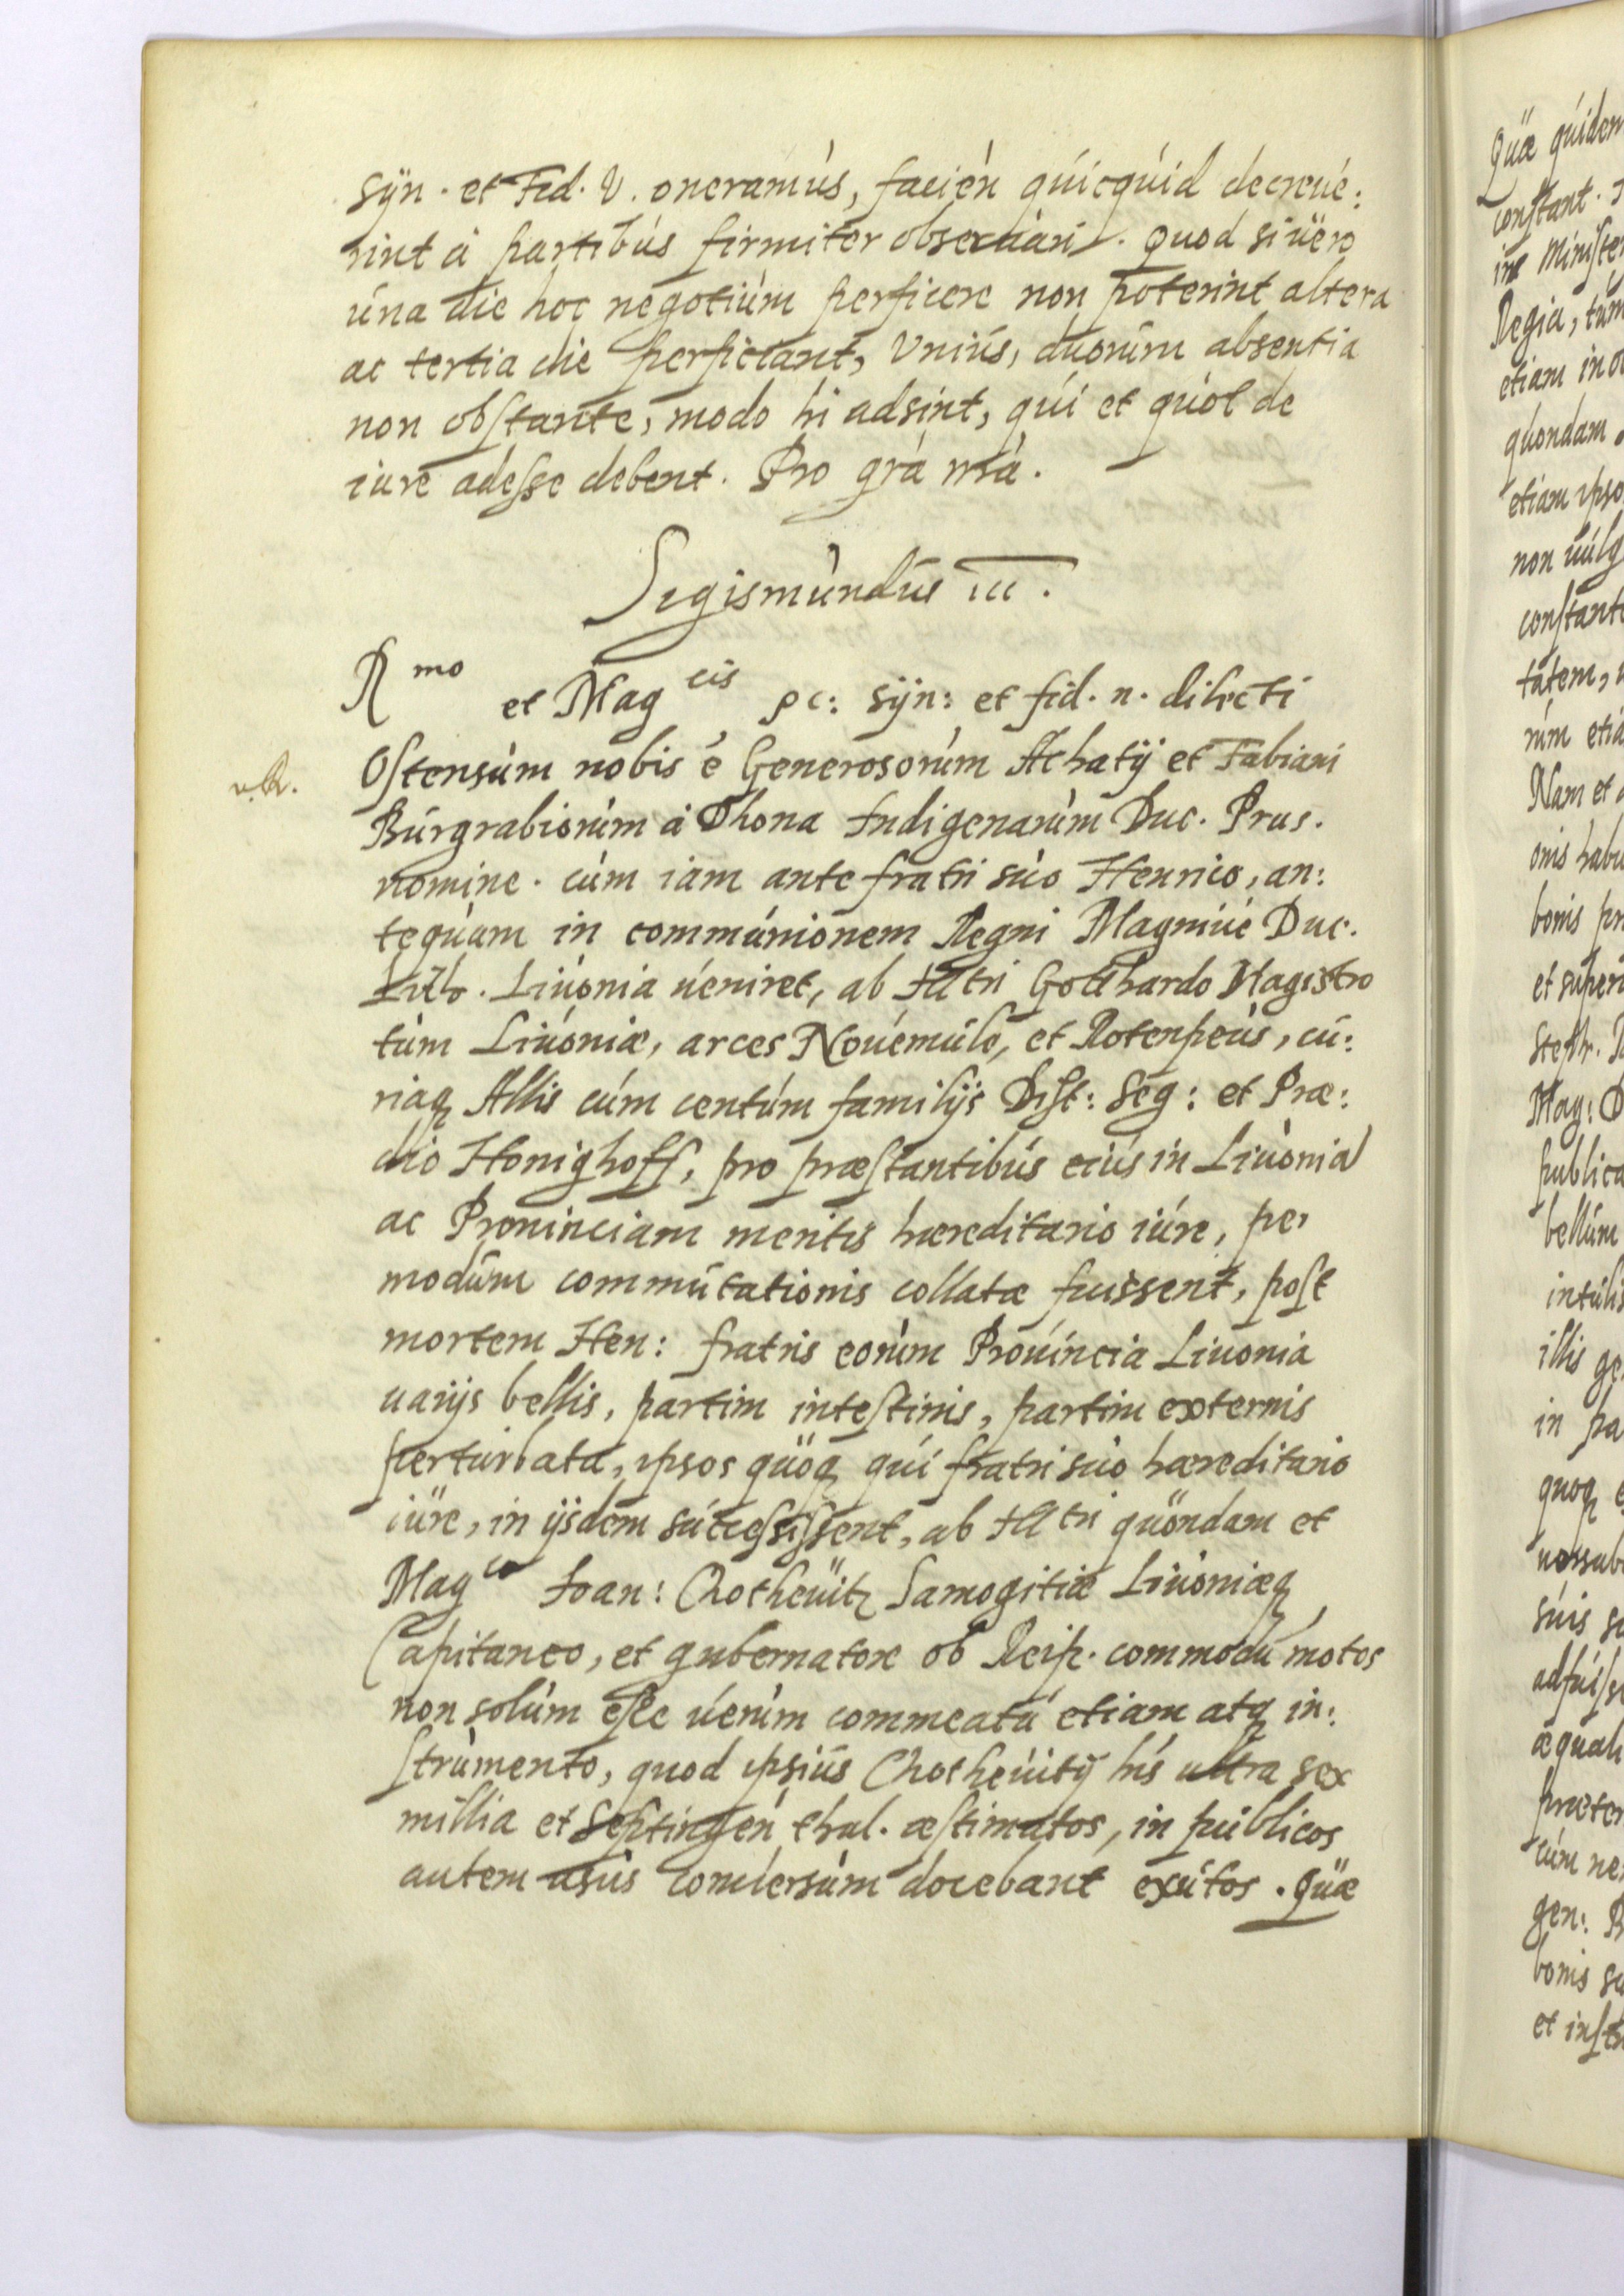 Syn. et Fid. V. oneramus, facien quicquid decreue:
rint à partibus firmiter obseruari. Quod si uero
una die hoc negotium perficere non poterint altera
ac tertia die perficiant, Unius, duorum absentia
non obstante, modo hi adsint, qui et quot de
iure adesse debent. Pro gra nra.
Sigismundus III.
Rmo et Magcis pc: syn: et fid. n. dilecti
v. R. Ostensum nobis è Generosorum Achatij et Fabiani
Burgrabiorum à Dhona Indigenarum Duc. Prus.
nomine. cum iam ante fratri suo Henrico, an:
tequam in communionem Regni Magniue Duc.
Lith. Liuonia ueniret, ab Illtri Gotthardo Magistro
tum Liuoniæ, arces Nouemulo, et Rotenpeus, cu:
riaq Allis cum centum familijs Dist: Seg: et Præ:
dio Honighoff, pro præstantibus eius in Liuonia
ac Prouinciam meritis hæreditario iure, per
modum commutationis collatæ fuissent, post
mortem Hen: fratris eorum Prouincia Liuonia
uarijs bellis, partim intestinis, partim externis
perturbata, ipsos quoq qui fratri suo hæreditario
iure, in ijsdem successissent, ab Illtri quondam et
Magco Ioan: Chotkeuitz Samogitiæ Liuoniæq
Capitaneo, et gubernatore ob Reip. commodu motos
non solum esse uerum commeatu etiam atq in:
strumento, quod ipsius Chotkeuitij his ultra sex
millia et septingen thal. æstimatos, in publicos
autem usus conuersum docebant exutos. Quæ
Quæ quidem
constant.
in Minister
Regia, tum
etiam in
quondam
etiam ipso
non uulg
constante
tatem,
rum etia
Nam et
onis habu
bonis pr
et super
Steph.
Mag:
publica
bellum
intulis
illis ge
in pa
quoq
suis
adfuiss
æqual
præter
cum ne
gen:
bonis su
et instr